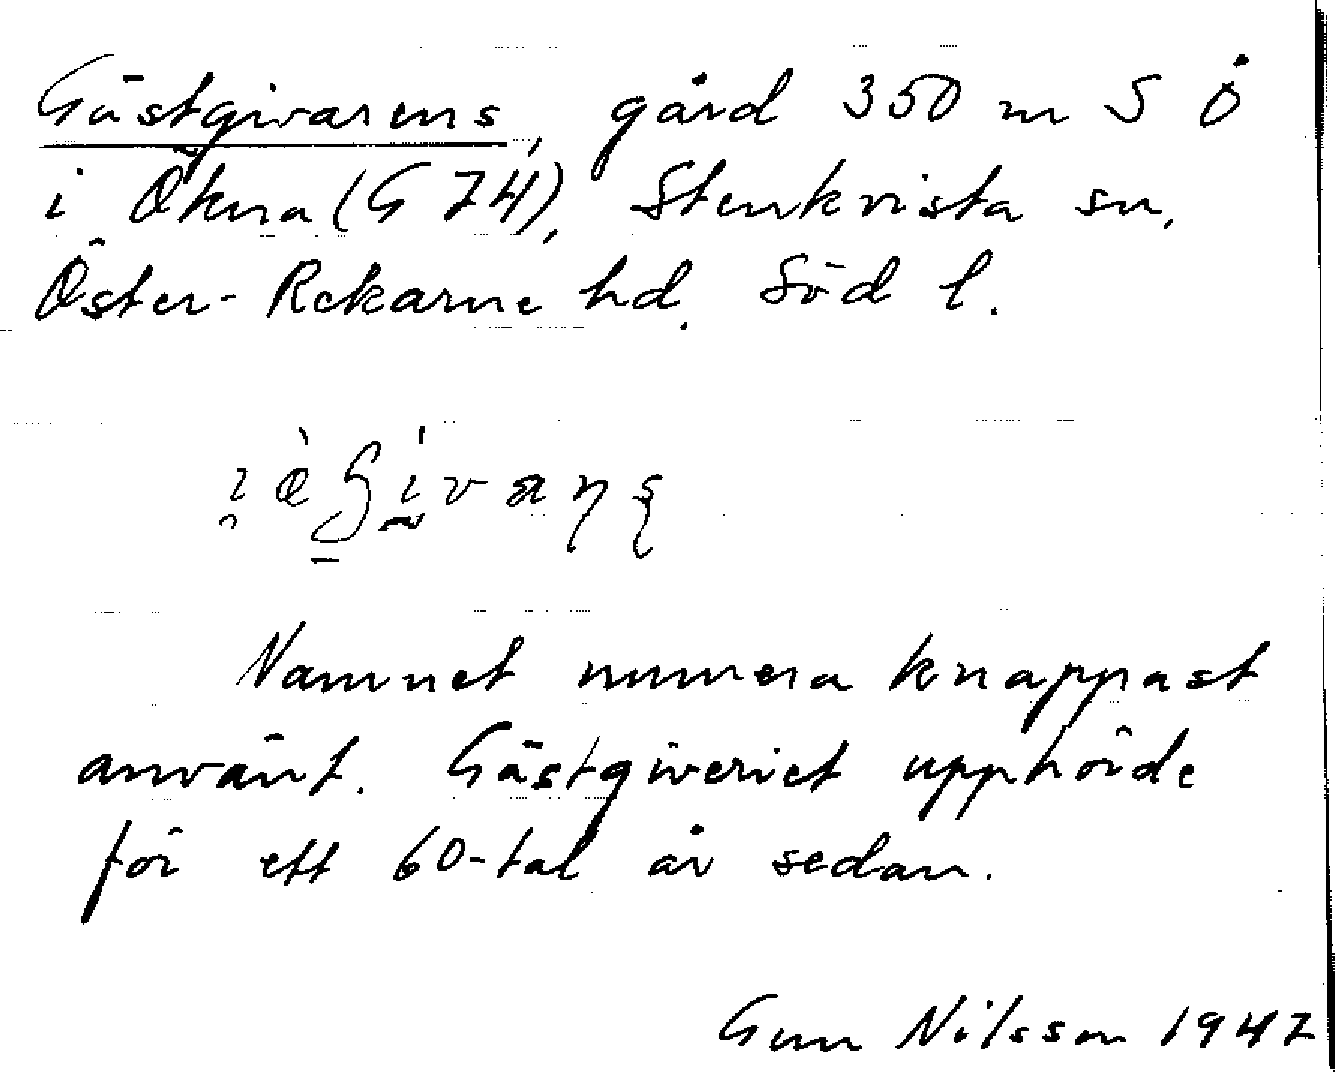 Gästgivarens, gård 350 m S Ö
i Ökna (G 74), Stenkvista sn,
Öster-Rekarne hd. Söd l.
Namnet numera knappast
använt. Gästgiveriet upphörde
för ett 60-tal år sedan.
Gun Nilsson 1947